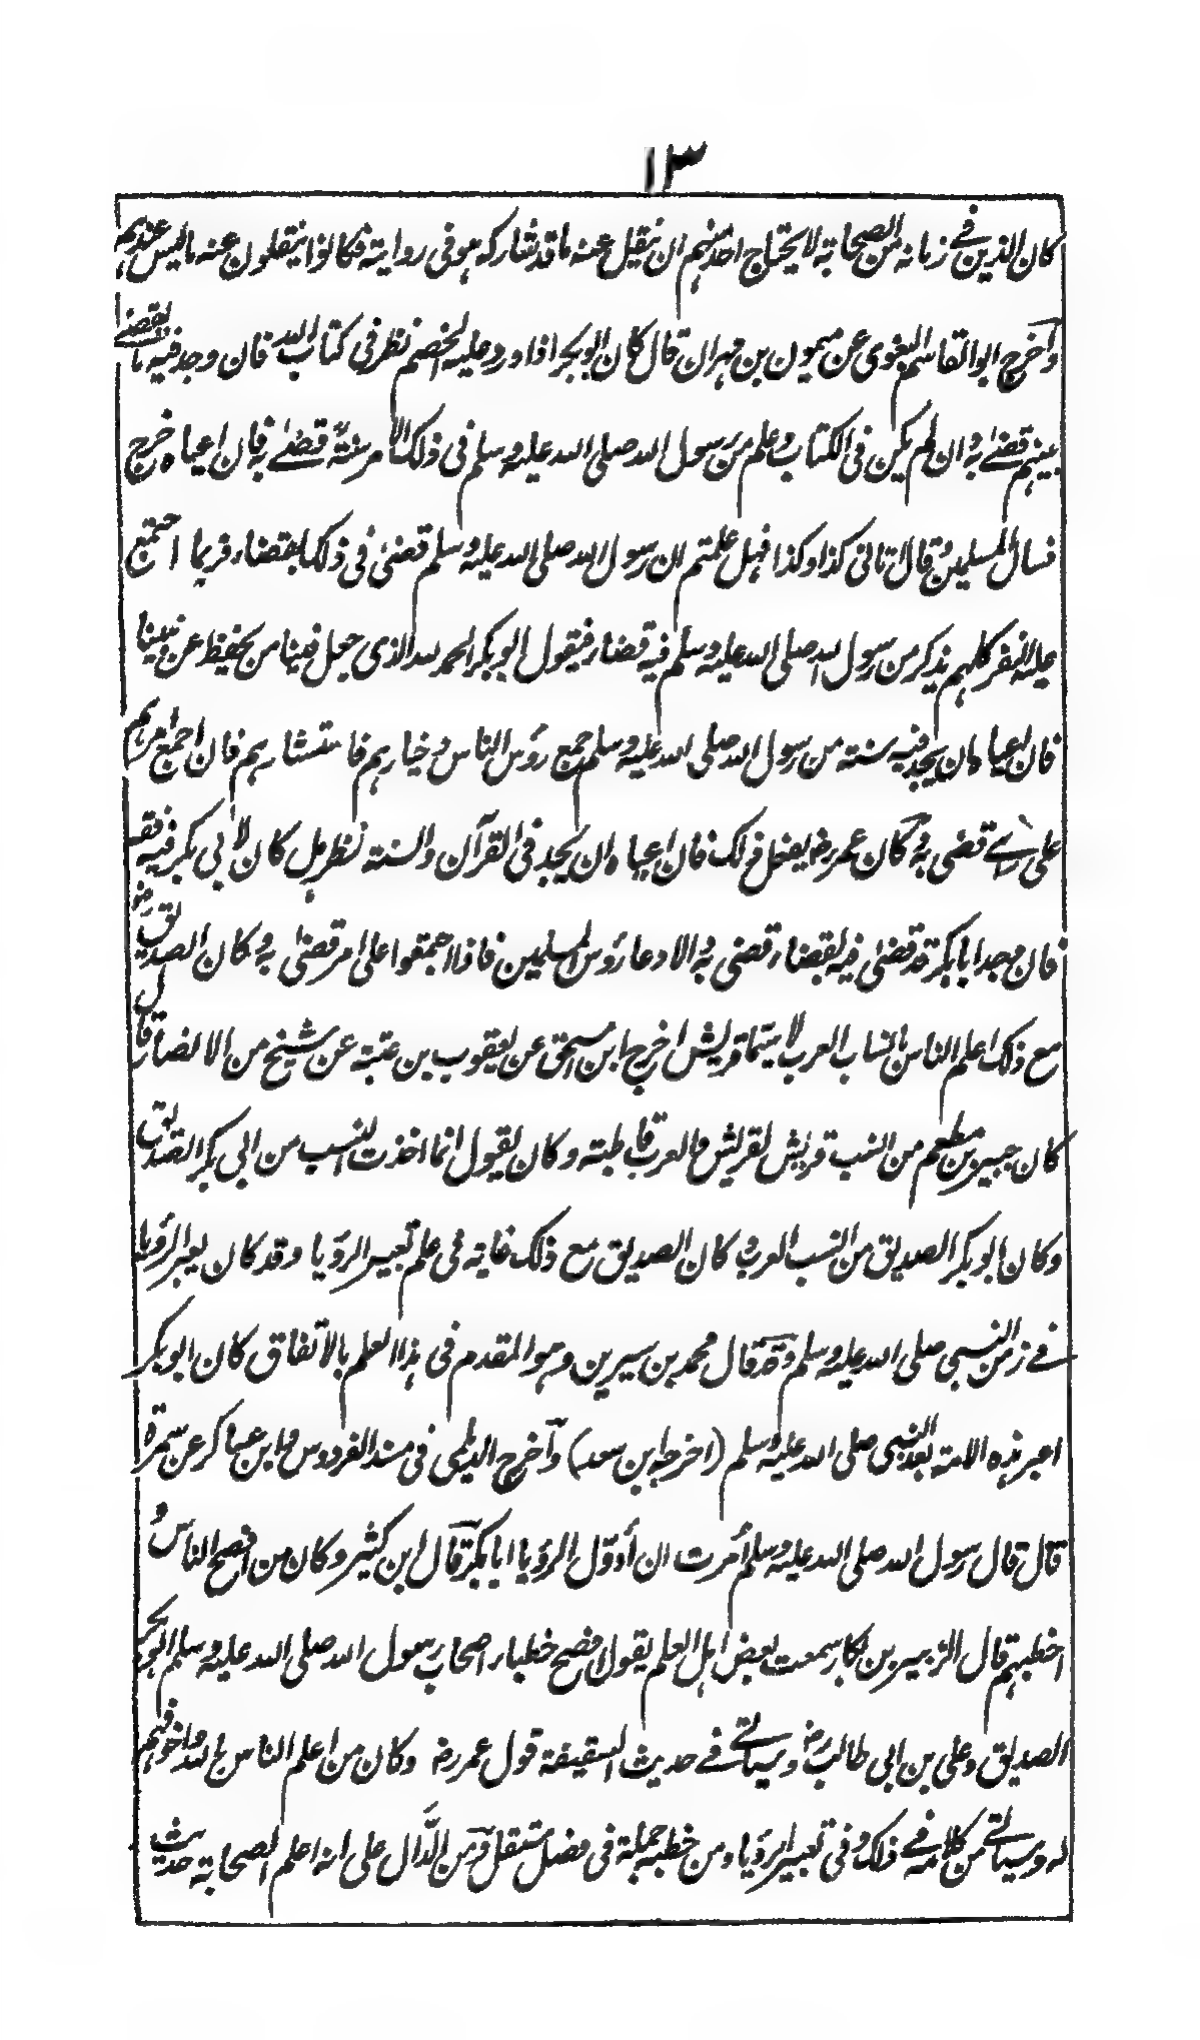 ١٣
كان الذين في زمانه من الصحابة لا يحتاج احد منهم ان ينقل عنه ما قد شاركه هو في روايته فكانوا ينقلون عنه ما ليس عندهم
وآخرج ابو القاسم البغوى عن ميمون بن مهران قال كان ابو بكر اذا ورد عليه الخصم نظر فى كتاب الله فان وجد فيه ما يقضى
بينهم قضى به وان لم يكن فى الكتاب وعلم من رسول الله صلى الله عليه وسلم فى ذلك الامر سنة قضى به فان اعياه خرج
فسأل المسلمين وقال اتانى كذا وكذا فهل علمتم ان رسول الله صلى الله عليه وسلم قضى فى ذلك بقضاء فربما اجتمع
عليه النفر كلهم يذكر من رسول الله صلى الله عليه وسلم فيه قضاء فيقول ابو بكر الحمد لله الذى جعل فينا من يحفظ عن نبينا
فان اعياه ان يجد فيه سنة من رسول الله صلى الله عليه وسلم جمع رؤس الناس وخيارهم فاستشارهم فان اجمع امرهم
على رأے قضى به وكان عمر رض يفعل ذلك فان اعياه ان يجد فى القرآن والسنة نظر هل كان لابى بكر فيه قضاء
فان وجد ابا بكر قد قضى فيه بقضاء قضى به والا دعا رؤس المسلمين فاذا اجتمعوا على امر قضى به وكان الصديق رض
مع ذلك اعلم الناس بانساب العرب لا سيما قريش اخرج ابن اسحق عن يعقوب بن عتبة عن شيخ من الانصار قال
كان جبير بن مطعم من انسب قريش لقريش والعرب قاطبة وكان يقول انما اخذت النسب من ابى بكر الصديق
وكان ابو بكر الصديق من انسب العرب وكان الصديق مع ذلك غاية فى علم تعبير الرؤيا وقد كان يعبر الرؤيا
فے زمن النبى صلى الله عليه وسلم وقد قال محمد بن سيرين وهو المقدم فى هذا العلم بالاتفاق كان ابو بكر
اعبر هذه الامة بعد النبى صلى الله عليه وسلم (اخرجه ابن سعد) وآخرج الديلمى فى مسند الفردوس وابن عساكر عن سمرة
قال قال رسول الله صلى الله عليه وسلم أمرت ان أدوّل الرؤيا ابا بكر وقال ابن كثير وكان من افصح الناس و
اخطبهم قال الزبير بن بكار سمعت بعض اهل العلم يقول افصح خطباء اصحاب رسول الله صلى الله عليه وسلم ابو بكر
الصديق وعلى بن ابى طالب رض وسياتے فے حديث السقيفة قول عمر رض وكان من اعلم الناس بالله واخوفهم
له وسياتے من كلامه فے ذلك وفى تعبير الرؤيا ومن خطبه جملة فى فصل مستقل ومن الدّال على انه اعلم الصحابة حديث